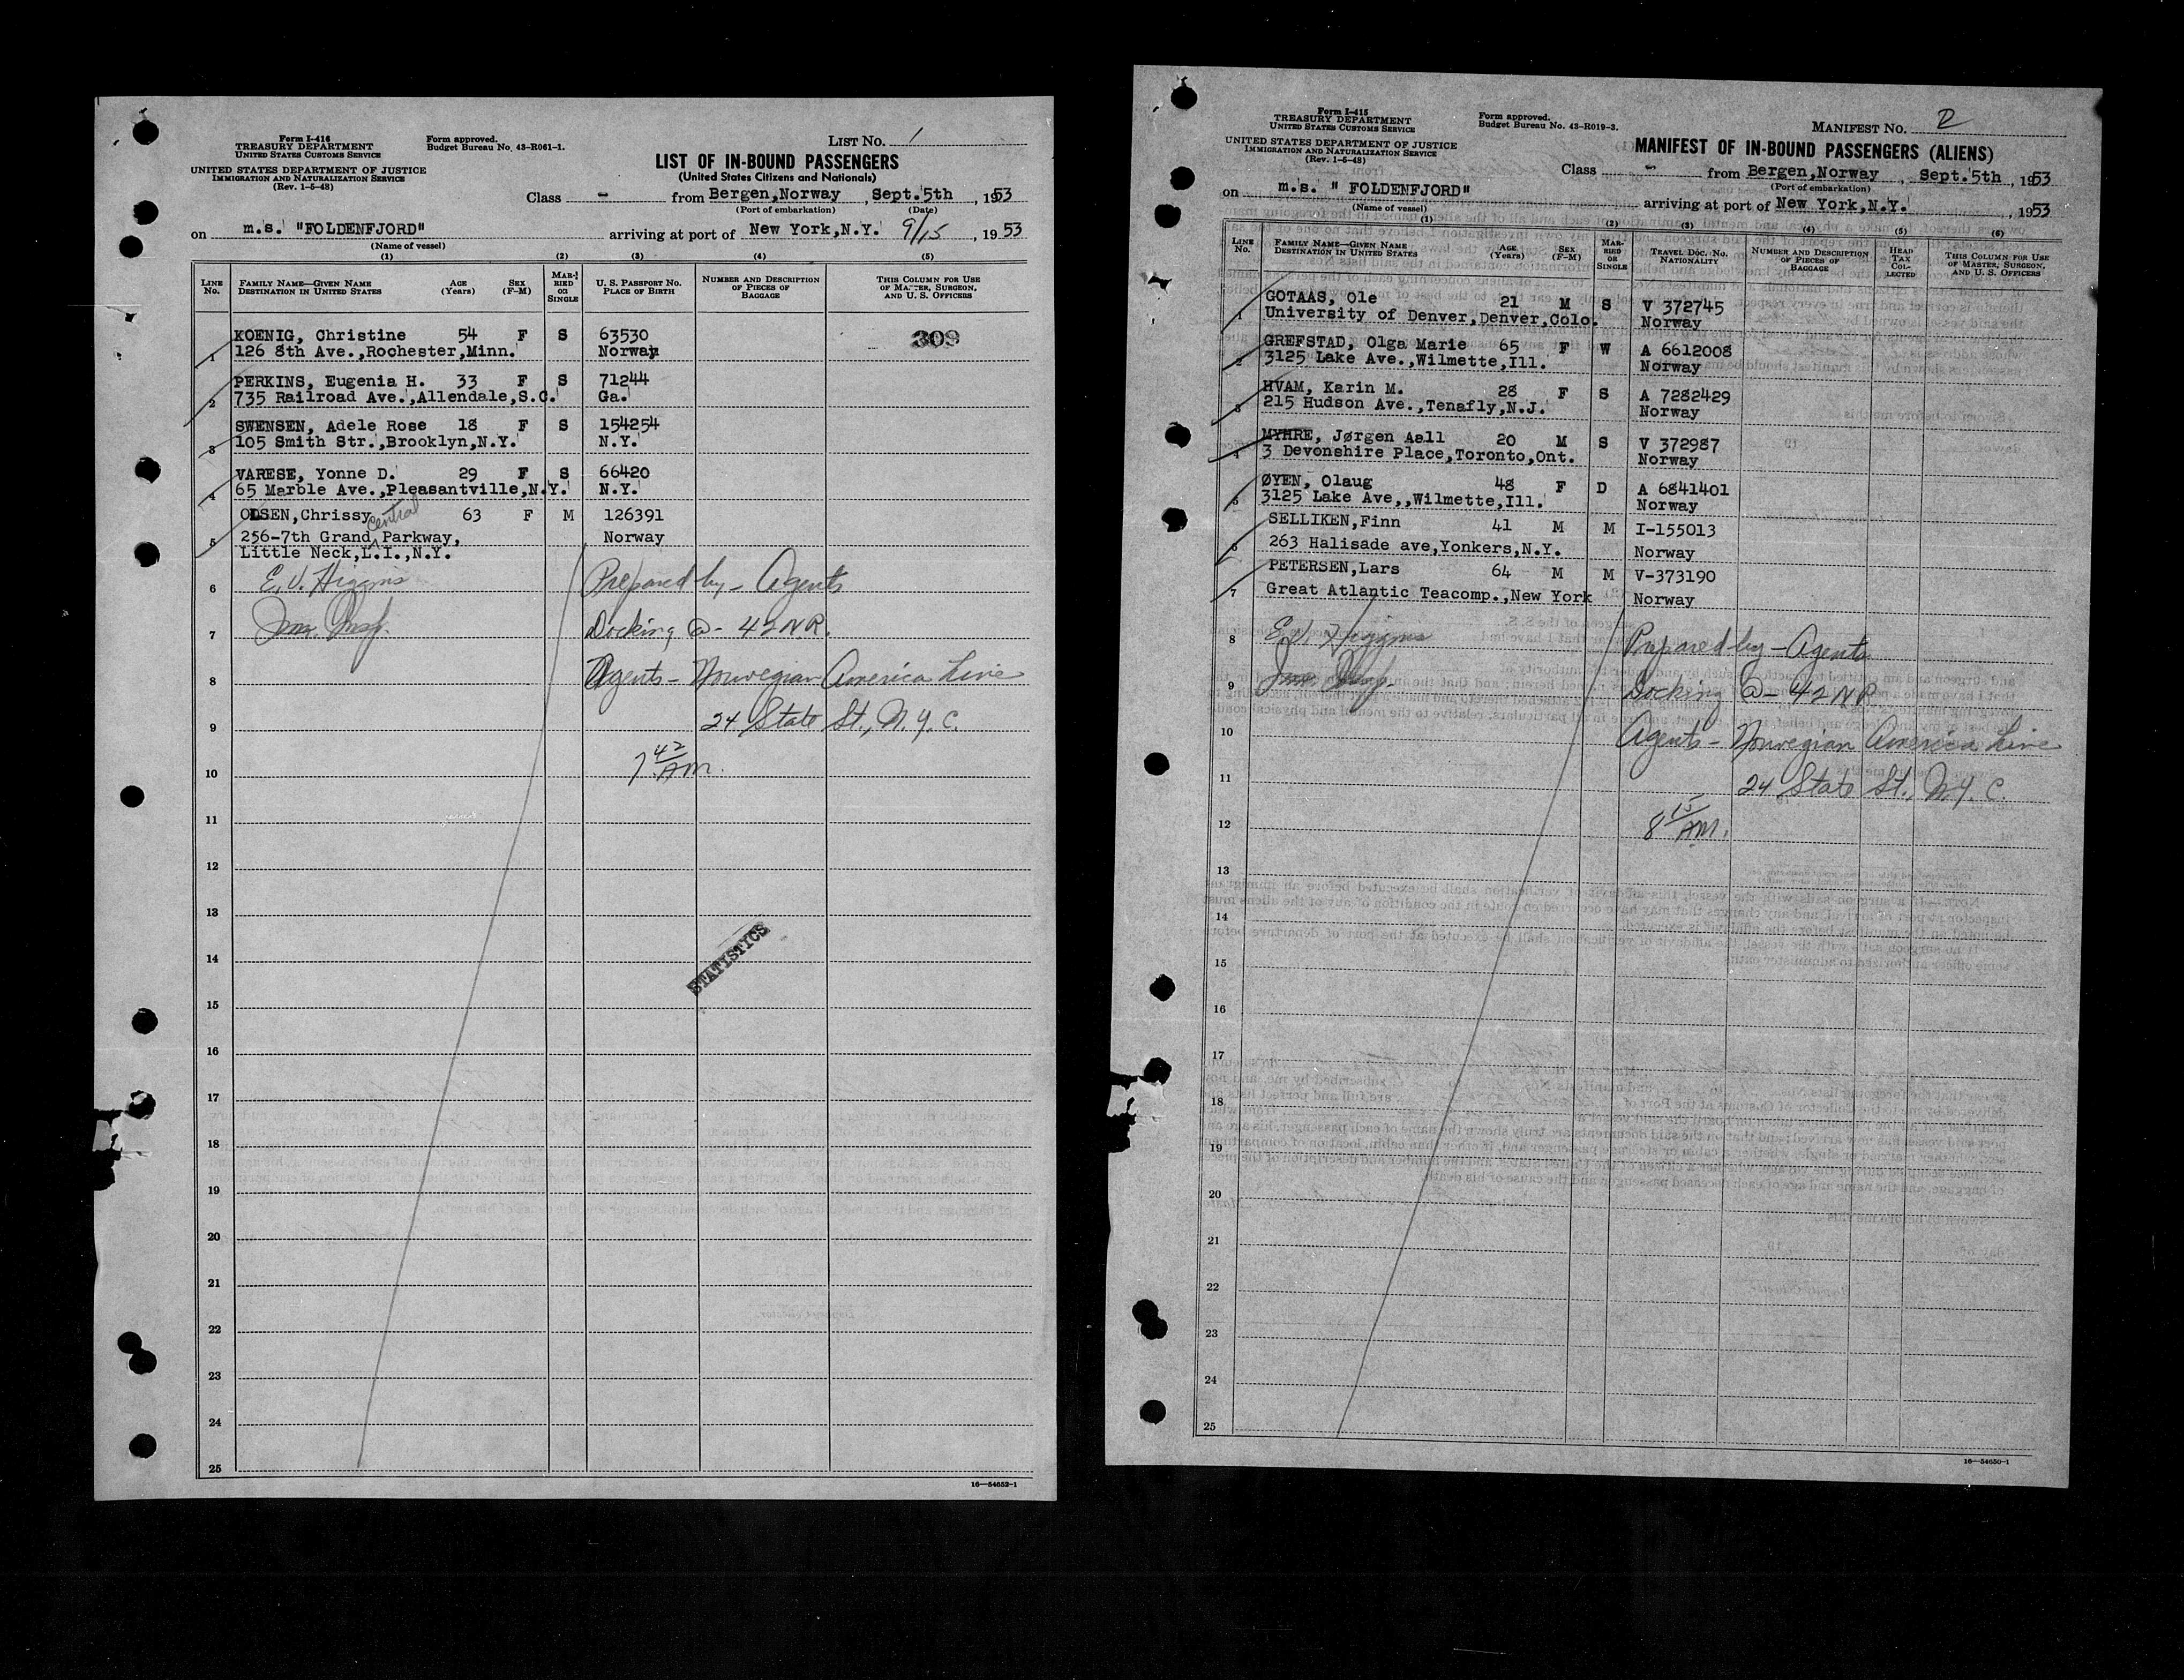 Form I-416
TREASURY DEPARTMENT
UNITED STATES CUSTOMS SERVICE
UNITED STATES DEPARTMENT OF JUSTICE
IMMIGRATION AND NATURALIZATION SERVICE
(Rev. 1-5-48)
Form approved.
Budget Bureau No. 43-R061-1.
LIST No. 1
LIST OF IN-BOUND PASSENGERS
(United States Citizens and Nationals)
Class - from Bergen,Norway , Sept.5th , 1953
(Port of embarkation) (Date)
on m.s. "FOLDENFJORD" arriving at port of New York,N.Y. 9/15 , 1953
(Name of vessel)
(1) (2) (3) (4) (5)
LINE No. FAMILY NAME—GIVEN NAME DESTINATION IN UNITED STATES AGE (Years) SEX (F-M) MARRIED OR SINGLE U. S. PASSPORT NO. PLACE OF BIRTH NUMBER AND DESCRIPTION OF PIECES OF BAGGAGE THIS COLUMN FOR USE OF MASTER, SURGEON, AND U. S. OFFICERS
KOENIG, Christine 54 F S 63530 309
1 126 8th Ave.,Rochester,Minn. Norway
PERKINS, Eugenia H. 33 F S 71244
2 735 Railroad Ave.,Allendale,S.C. Ga.
SWENSEN, Adele Rose 18 F S 154254
3 105 Smith Str.,Brooklyn,N.Y. N.Y.
VARESE, Yonne D. 29 F S 66420
4 65 Marble Ave.,Pleasantville,N.Y. N.Y.
OLSEN,Chrissy 63 F M 126391
Central
256-7th Grand Parkway, Norway
5 Little Neck,L.I.,N.Y.
6 E.V. Higgins Prepared by - Agents
7 Imm. Insp. Docking @ - 42 N.R.
8 Agents - Norwegian America Line
9 24 State St., N.Y.C.
10 7 42 AM.
11
12
13
14 STATISTICS
15
16
17
18
19
20
21
22
23
24
25
16—54652-1
Form I-415
TREASURY DEPARTMENT
UNITED STATES CUSTOMS SERVICE
UNITED STATES DEPARTMENT OF JUSTICE
IMMIGRATION AND NATURALIZATION SERVICE
(Rev. 1-5-48)
Form approved.
Budget Bureau No. 43-R019-3.
MANIFEST No. 2
MANIFEST OF IN-BOUND PASSENGERS (ALIENS)
Class - from Bergen,Norway , Sept.5th , 1953
(Port of embarkation)
on m.s. " FOLDENFJORD" arriving at port of New York,N.Y. , 1953
(Name of vessel)
(1) (2) (3) (4) (5) (6)
LINE No. FAMILY NAME—GIVEN NAME DESTINATION IN UNITED STATES AGE (Years) SEX (F-M) MARRIED OR SINGLE TRAVEL DOC. NO. NATIONALITY NUMBER AND DESCRIPTION OF PIECES OF BAGGAGE HEAD TAX COLLECTED THIS COLUMN FOR USE OF MASTER, SURGEON, AND U. S. OFFICERS
GOTAAS, Ole 21 M S V 372745
1 University of Denver,Denver,Colo. Norway
GREFSTAD, Olga Marie 65 F W A 6612008
2 3125 Lake Ave.,Wilmette,Ill. Norway
HVAM, Karin M. 28 F S A 7282429
3 215 Hudson Ave.,Tenafly,N.J. Norway
MYHRE, Jørgen Aall 20 M S V 372987
4 3 Devonshire Place,Toronto,Ont. Norway
ØYEN, Olaug 48 F D A 6841401
5 3125 Lake Ave,,Wilmette,Ill. Norway
SELLIKEN,Finn 41 M M I-155013
6 263 Halisade ave,Yonkers,N.Y. Norway
PETERSEN,Lars 64 M M V-373190
7 Great Atlantic Teacomp.,New York Norway
8 E.V. Higgins Prepared by - Agents
9 Imm. Insp. Docking @ - 42 N.R.
10 Agents - Norwegian America Line
11 24 State St., N.Y.C.
12 8 15 AM.
13
14
15
16
17
18
19
20
21
22
23
24
25
16—54650-1